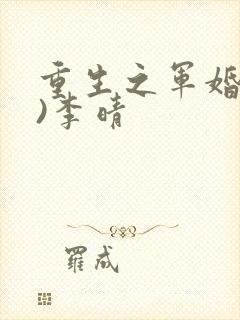 重生之军婚
)李晴
罗成